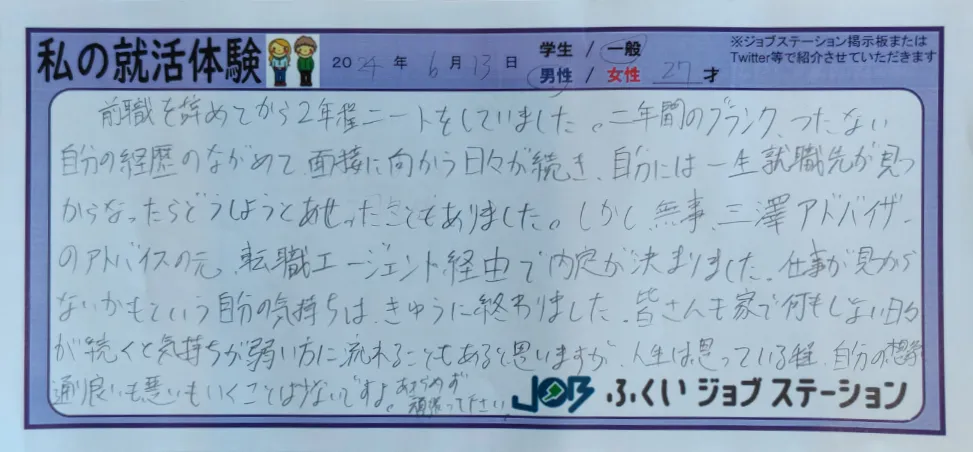 私の就活体験
2024年 6月 13日
学生 / 一般
男性 / 女性 27才
※ジョブステーション掲示板または
Twitter等で紹介させていただきます
前職を辞めてから2年程ニートをしていました。二年間のブランク、つたない
自分の経歴のながめて、面接に向かう日々が続き、自分には一生就職先が見つ
からなったらどうしようとあせったこともありました。しかし、無事、三澤アドバイザー
のアドバイスの元、転職エージェント経由で内定が決まりました。仕事が見つから
ないかもという自分の気持ちは、きゅうに終わりました。皆さんも家で何もしない日々
が続くと気持ちが弱い方に流れることもあると思いますが、人生は思っている程、自分の想像
通り良いも悪いもいくことは少ないですよ。あきらめず
頑張って下さい。
JOB ふくいジョブステーション